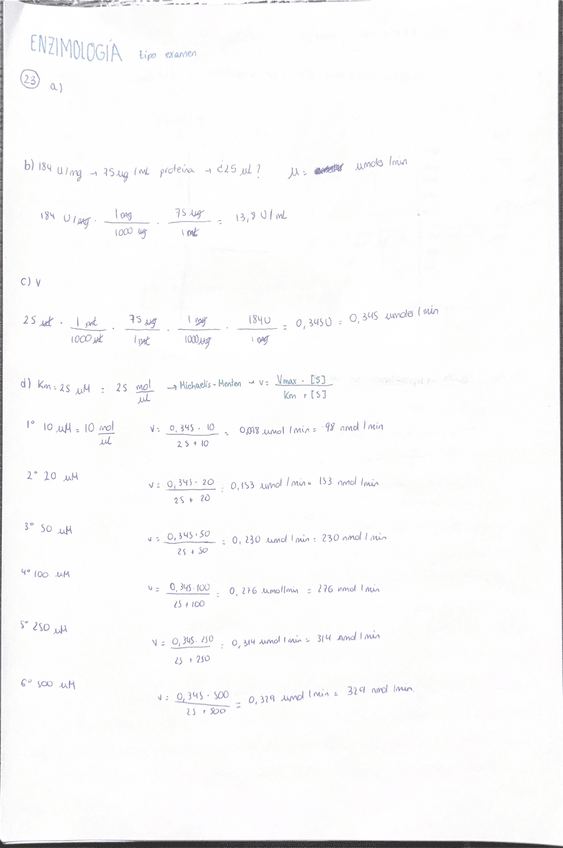 ENZIMOLOGÍA tipo examen
23 a)
b) 184 U/mg → 75 µg/mL proteína → ¿25 µL? µ = µmols/min
184 U/mg · 1 mg / 1000 µg · 75 µg / 1 mL = 13,8 U/mL
c) V
25 µL · 1 mL / 1000 µL · 75 µg / 1 mL · 1 mg / 1000 µg · 184 U / 1 mg = 0,345 U = 0,345 µmols/min
d) Km = 25 µM = 25 mol / µL → Michaelis-Menten → v = Vmax · [S] / Km + [S]
1° 10 µM = 10 mol / µL V = 0,345 · 10 / 25 + 10 = 0,098 µmol/min = 98 nmol/min
2° 20 µM v = 0,345 · 20 / 25 + 20 = 0,153 µmol/min = 153 nmol/min
3° 50 µM v = 0,345 · 50 / 25 + 50 = 0,230 µmol/min = 230 nmol/min
4° 100 µM v = 0,345 · 100 / 25 + 100 = 0,276 µmol/min = 276 nmol/min
5° 250 µM V = 0,345 · 250 / 25 + 250 = 0,314 µmol/min = 314 nmol/min
6° 500 µM v = 0,345 · 500 / 25 + 500 = 0,329 µmol/min = 329 nmol/min